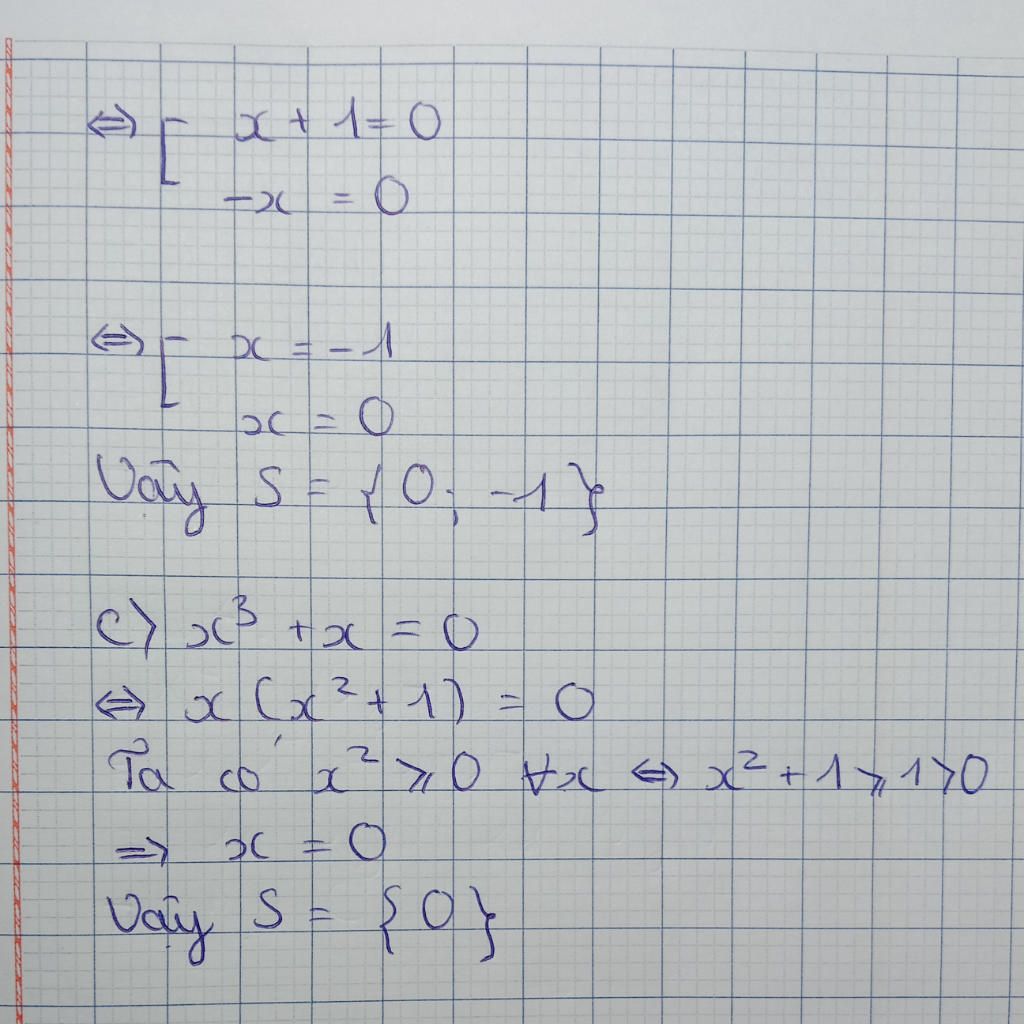 ⇔ [ x + 1 = 0
-x = 0
⇔ [ x = -1
x = 0
Vậy S = { 0; -1 }
c) x³ + x = 0
⇔ x (x² + 1) = 0
Ta có x² ⩾ 0 ∀x ⇔ x² + 1 ⩾ 1 > 0
⇒ x = 0
Vậy S = { 0 }